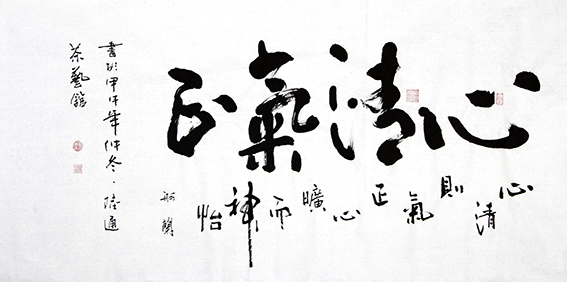 心清氣正
心清則氣正心曠而神怡
書於甲午年仲冬、陸通
茶藝館